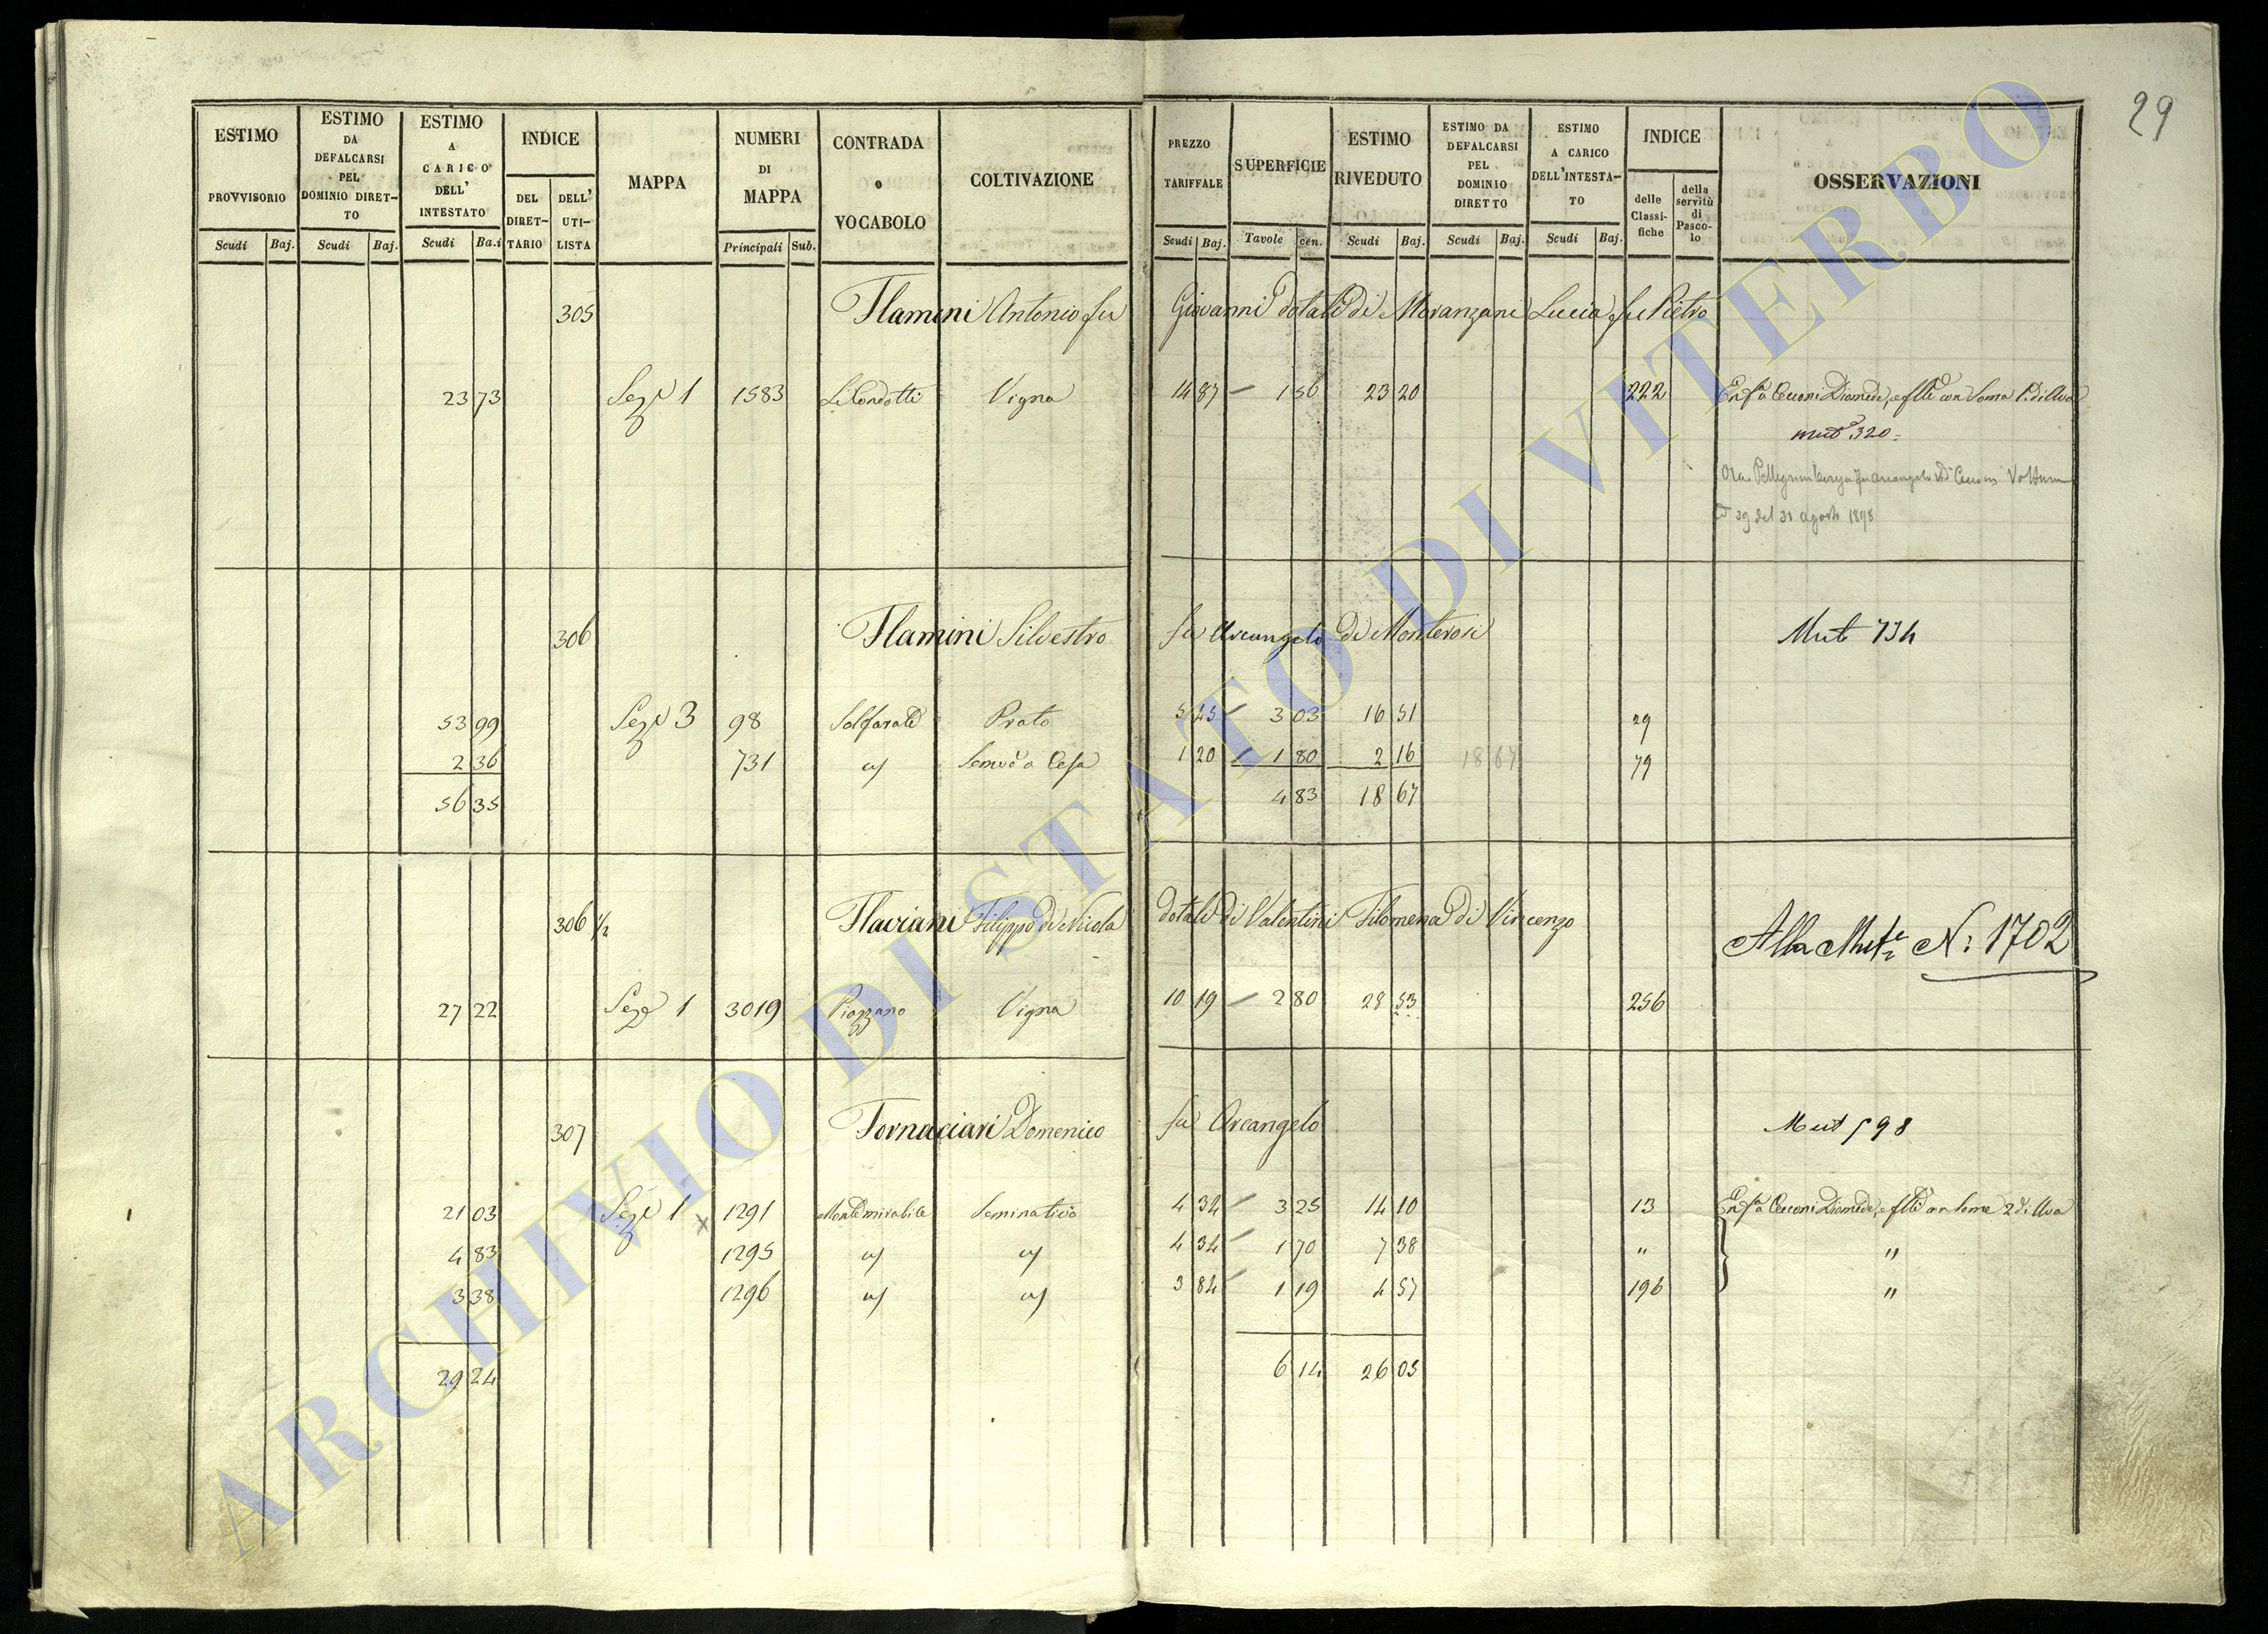 29
ESTIMO PROVVISORIO
ESTIMO DA DEFALCARSI PEL DOMINIO DIRET-TO
ESTIMO A CARICO DELL' INTESTATO
INDICE
DEL DIRET-TARIO
DELL' UTI-LISTA
MAPPA
NUMERI DI MAPPA
CONTRADA o VOCABOLO
COLTIVAZIONE
PREZZO TARIFFALE
SUPERFICIE
ESTIMO RIVEDUTO
ESTIMO DA DEFALCARSI PEL DOMINIO DIRETTO
ESTIMO A CARICO DELL'INTESTA-TO
INDICE
delle Classi-fiche
della servitù di Pasco-lo
OSSERVAZIONI
Scudi Baj. Scudi Baj. Scudi Ba.i Principali Sub. Scudi Baj. Tavole cen. Scudi Baj. Scudi Baj. Scudi Baj.
305 Flamini Antonio fu Giovanni dotale di Moranzani Lucia fu Pietro
23 73 Sez. 1 1583 Li Condotti Vigna 14 87 1 56 23 20 222 Enf.a Cecconi Diomede,
mut. 320
39 del 31 agosto 1898
306 Flamini Silvestro fu Arcangelo di Monterosi Mut 734
53 99 Sez. 3 98 Solfarate Prato 5 45 3 03 16 51 29
2 36 731 " Semvo a Cesa 1 20 1 80 2 16 18 67 79
56 35 4 83 18 67
306 1/2 Flaviani Filippo di Nicola dotale di Valentini Filomena di Vincenzo
Alla Mut.e N: 1702
27 22 Sez. 1 3019 Piazzano Vigna 10 19 2 80 28 53 256
307 Fornaciari Domenico fu Arcangelo Mut 598
21 03 Sez. 1 x 1291 Monte mirabile Seminativo 4 34 3 25 14 10 13 Enf.a Cecconi Diomede,
4 83 1295 " " 4 34 1 70 7 38 " "
3 38 1296 " " 3 84 1 19 4 57 196 "
29 24 6 14 26 05
ARCHIVIO DI STATO DI VITERBO